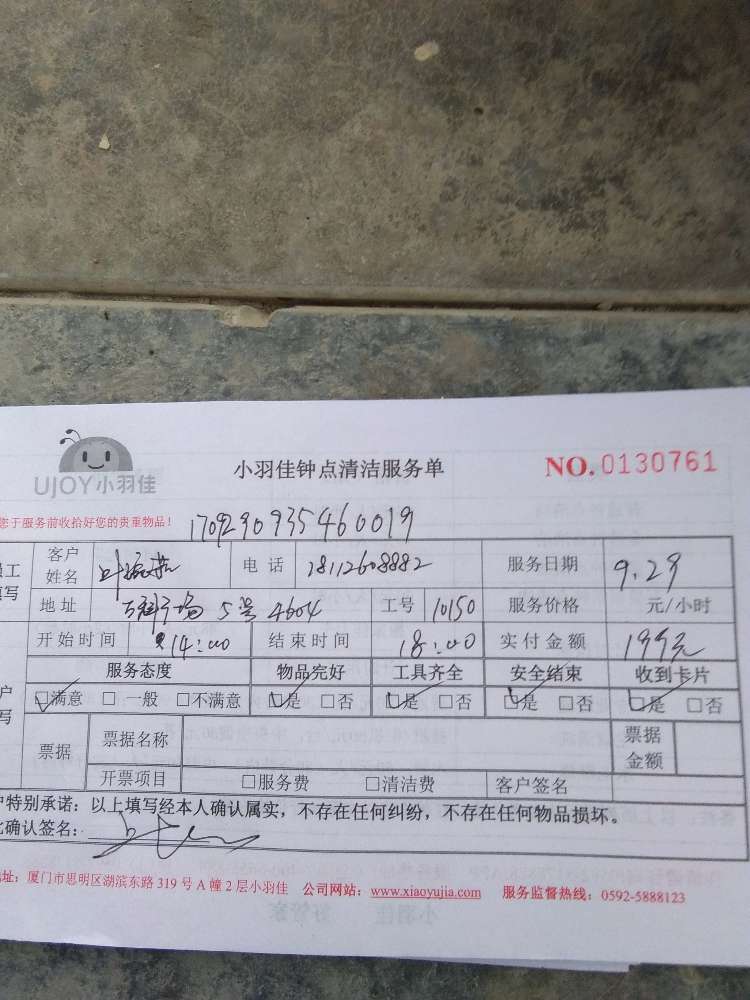 UJOY小羽佳
小羽佳钟点清洁服务单
NO.0130761
您于服务前收拾好您的贵重物品！
1709290935460019
员工
填写
客户姓名 叶 电话 18112608882 服务日期 9.29
地址 5号 4604 工号 10150 服务价格 元/小时
开始时间 14:00 结束时间 18:00 实付金额 199元
服务态度 物品完好 工具齐全 安全结束 收到卡片
户
写
☑满意 □一般 □不满意 ☑是 □否 ☑是 □否 ☑是 □否 ☑是 □否
票据 票据名称 票据金额
开票项目 □服务费 □清洁费 客户签名
户特别承诺：以上填写经本人确认属实，不存在任何纠纷，不存在任何物品损坏。
此确认签名：
地址：厦门市思明区湖滨东路319号A幢2层小羽佳 公司网站：www.xiaoyujia.com 服务监督热线：0592-5888123